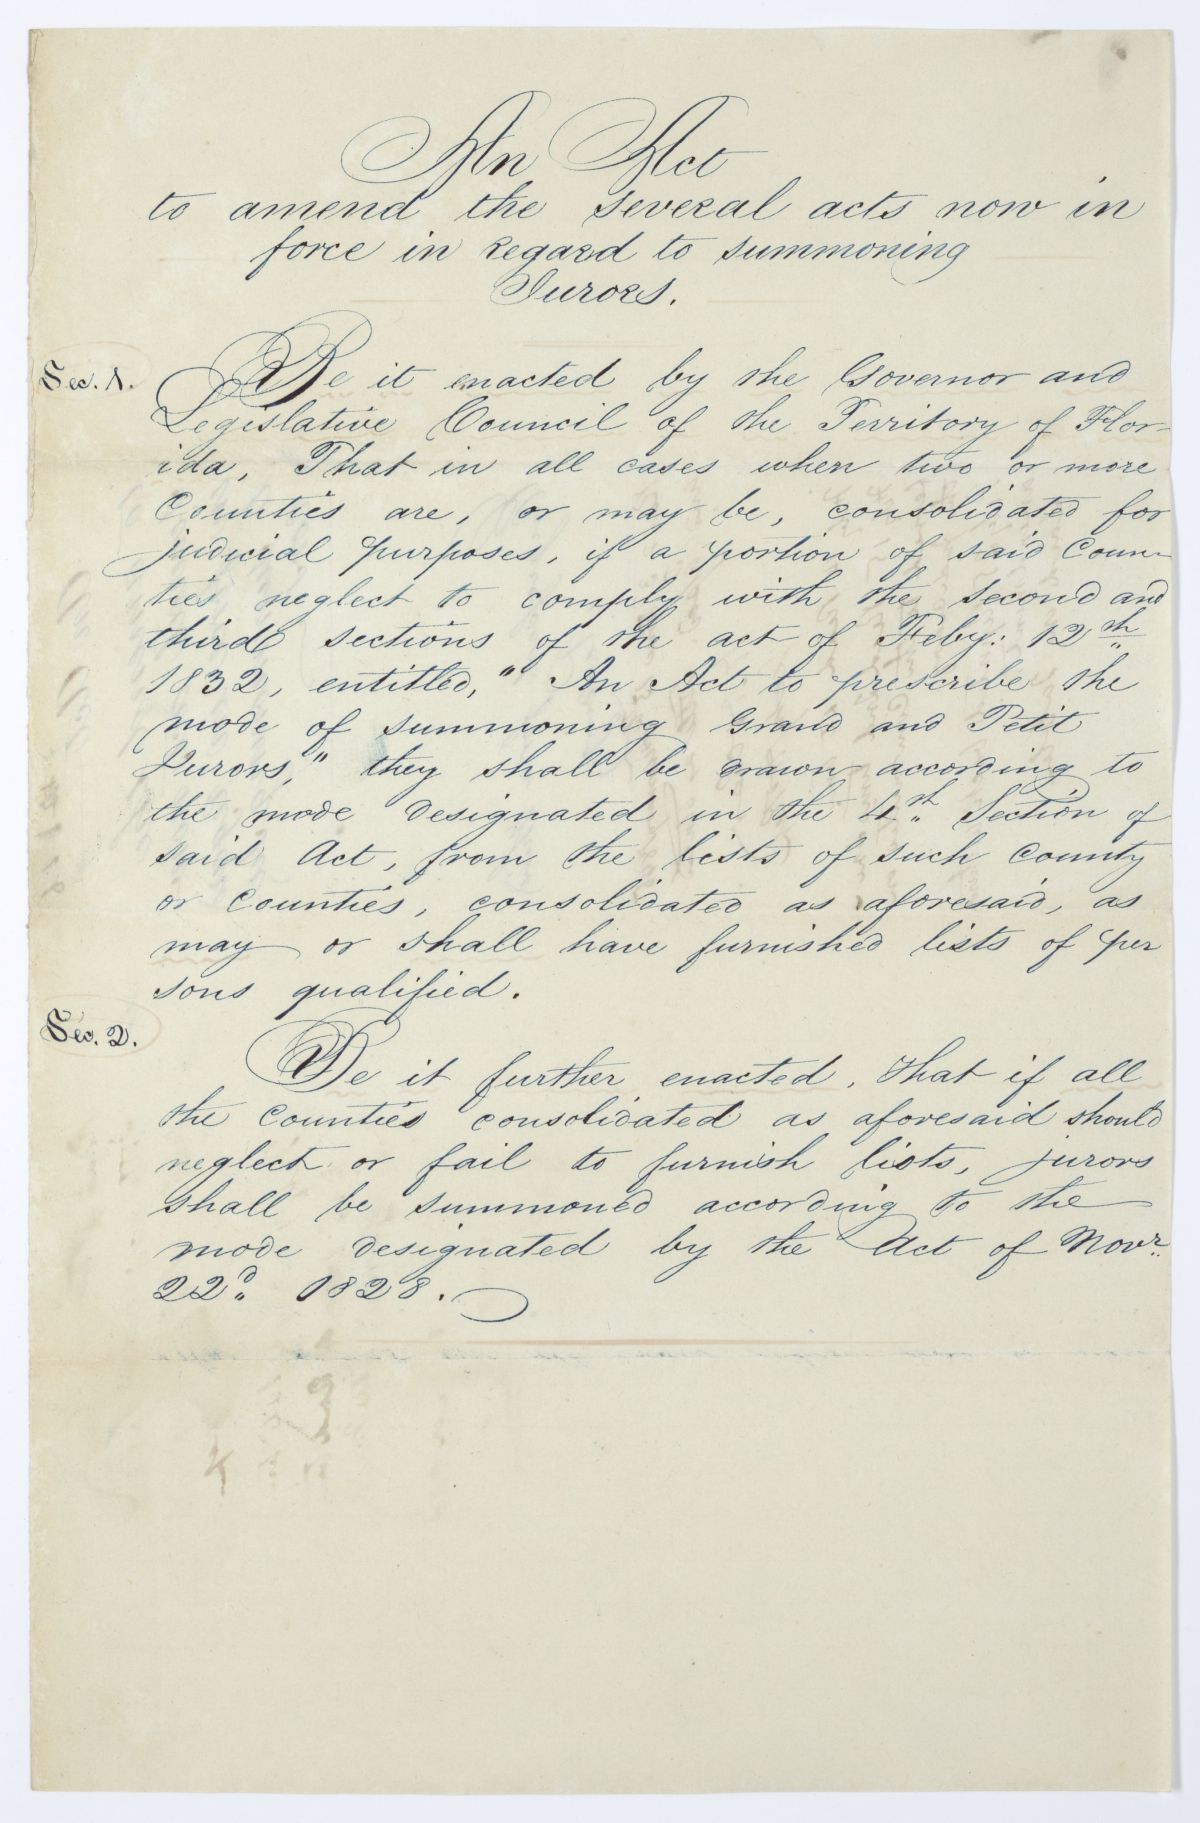 An Act
to amend the several acts now in
force in regard to summoning
Jurors.
Sec. 1.
Be it enacted by the Governor and
Legislative Council of the Territory of Flor-
ida, That in all cases when two or more
Counties are, or may be, consolidated for
judicial purposes, if a portion of said Coun-
ties neglect to comply with the second and
third sections of the act of Feby: 12th
1832, entitled, "An Act to prescribe the
mode of summoning Grand and Petit
Jurors," they shall be drawn according to
the mode designated in the 4th Section of
said Act, from the lists of such County
or Counties, consolidated as aforesaid, as
may or shall have furnished lists of per
sons qualified.
Sec. 2.
Be it further enacted, That if all
the Counties consolidated as aforesaid should
neglect or fail to furnish lists, jurors
shall be summoned according to the
mode designated by the Act of Novr.
22d 1828.